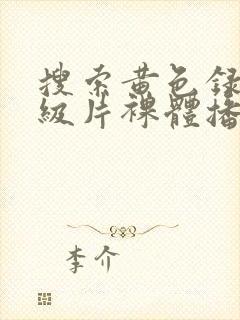 搜索黄色録
級片裸體播
李介